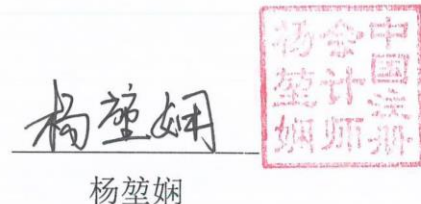 杨堃娴
中国注册
会计师
杨堃娴
杨堃娴